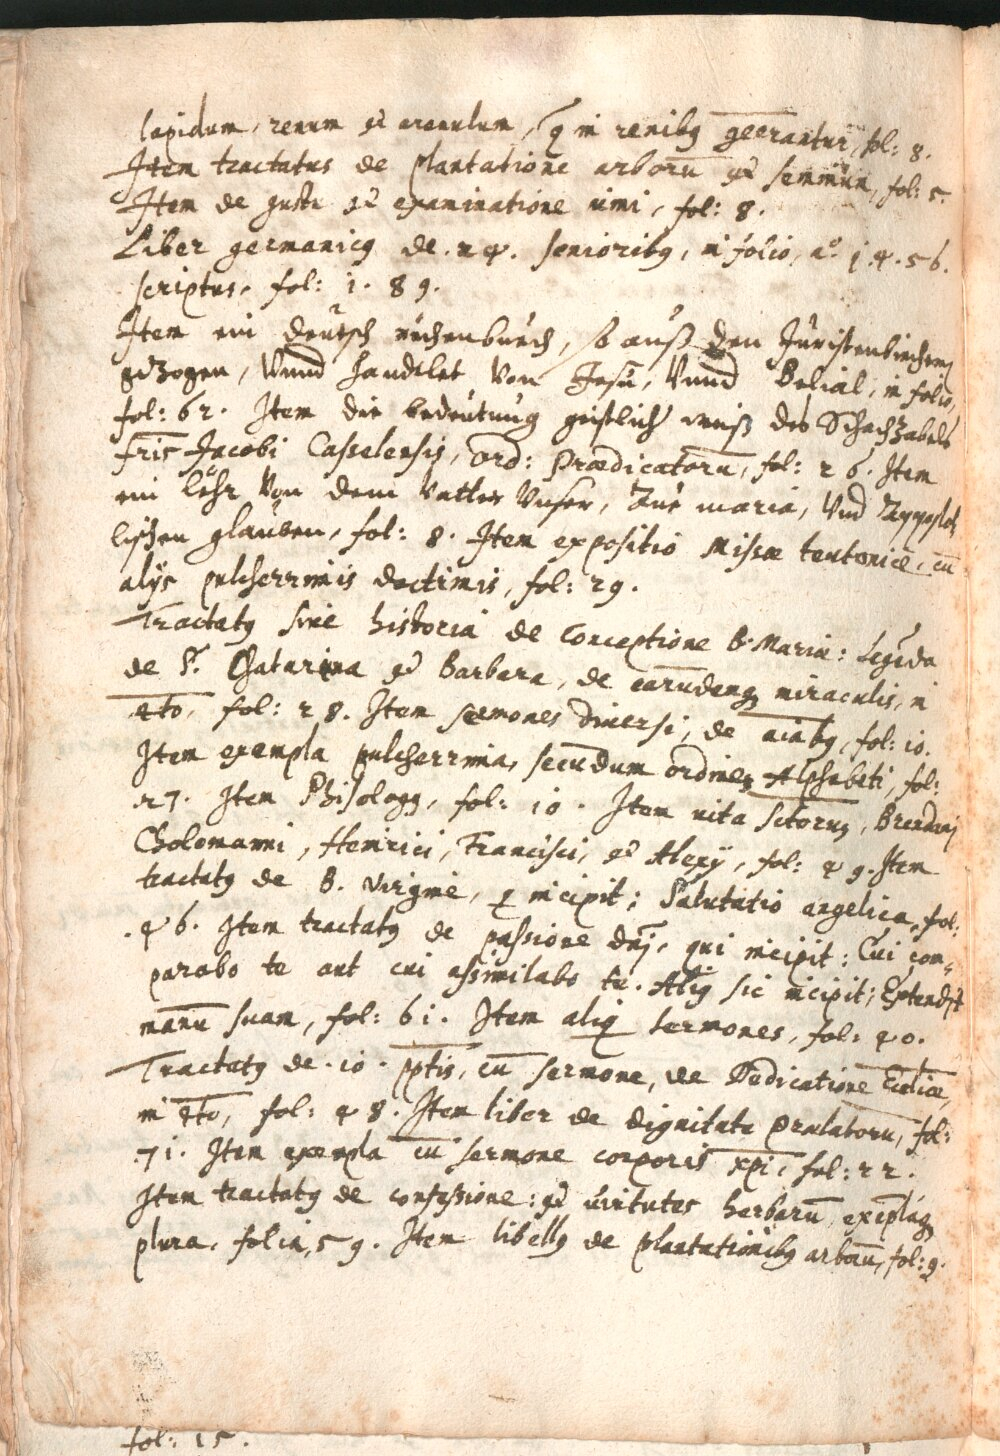 lapidum, renum et arenulum, q̃ in renibus geerantur, fol: 8.
Item tractatus de plantatione arborū et seminūn, fol: 5.
Item de gustu et examinatione uini, fol: 8.
Liber germanicus de .24. senioribus, in folio, aº. 1.4.56.
scriptus, fol: 1.89.
Item ein deutsch buch, so auß den Juristenbüchern
gezogen, Vnnd handelet Von Jesu, Vnnd Belial, in folio,
fol: 62. Item die bedeutung geistlicher weiß des SchachZabels
fris Jacobi Casselensis, ord: Prædicatorū, fol: 26. Item
ein lehr Von dem Vatter Vnser, Aue maria, Vnd Apposto-
lischen glauben, fol: 8. Item expositio Missæ teutonicè, cū
alijs pulcherrimis doctrinis, fol: 29.
Tractatus siue historia de conceptione B. Mariæ: Legēda
de S. Chatarina et Barbara, de earundemque miraculis, in
4to, fol: 28. Item sermones diuersi, de aiābus, fol: 10.
Item exempla pulcherrima, secūdum ordinem Alphabeti, fol:
27. Item Phisologus, fol: 10. Item uita sctorum, Brendani
Cholomanni, Heinrici, Francisci, et Alexij, fol: 49. Item
tractatus de B. Virgine, q incipit: Salutatio angelica, fol:
.46. Item tractatus de passione dnj, qui incipit: Cui com-
parabo te aut cui assimilabo te. Aliq sic incipit; Extendit
manū suam, fol: 61. Item aliq sermones, fol: 40.
Tractatus de .10. pptis, cū sermone, de Dedicatione Ecclīæ,
in 4to, fol: 48. Item liber de dignitate prælatorū, fol:
.71. Item exempla cū sermone corporis xpi, fol: 22.
Item tractatus de confessione: et uirtutes herbarū, exēplaque
plura, folia, 59. Item libellus de plantationibus arborū, fol: 9.
fol: 15.